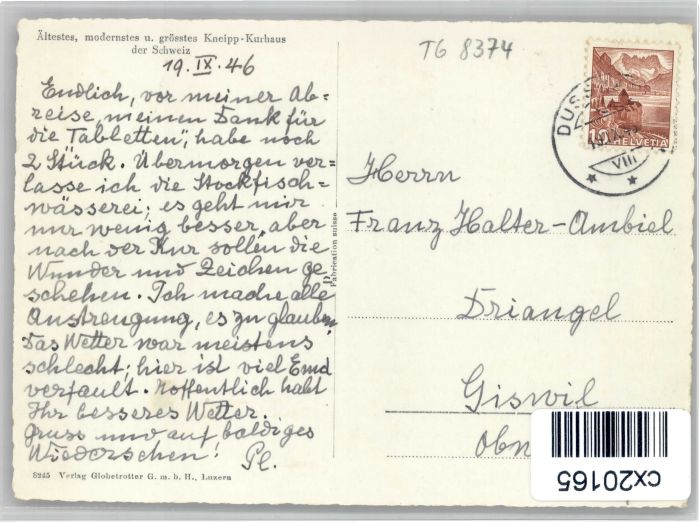 Ältestes, modernstes u. grösstes Kneipp-Kurhaus
der Schweiz
19. IX. 46
Endlich, vor meiner Ab=
reise, meinen Dank für
die Tabletten, habe noch
2 Stück. Übermorgen ver=
lasse ich die Stockfisch=
wässerei; es geht mir
nur wenig besser, aber
nach der Kur sollen die
Wunder und Zeichen ge
schehen. Ich mache alle
Anstrengung, es zu glauben.
Das Wetter war meistens
schlecht; hier ist viel Emd
verfault. Hoffentlich habt
Ihr besseres Wetter.
Gruss und auf baldiges
Wiedersehen! Pl.
8245 Verlag Globetrotter G. m. b. H., Luzern
Fabrication suisse
TG 8374
10 HELVETIA
DUSS
VIII
Herrn
Franz Halter-Ambiel
Driangel
Giswil
Obw
cx20165